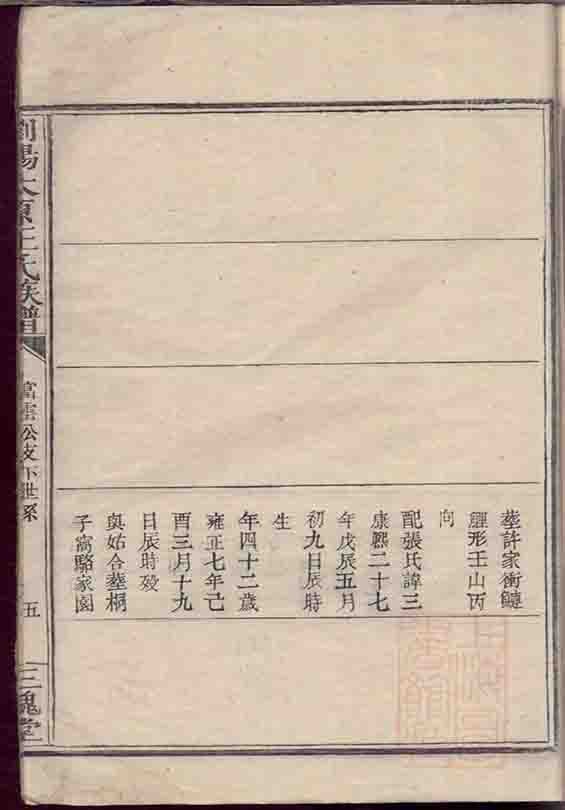 塟許家衝鱔
䱉形壬山丙
向
配張氏諱三
康熈二十七
年戊辰五月
初九日辰時
生
年四十二歲
雍正七年己
酉三月十九
日辰時殁
與姑合塟桐
子窩駱家園
瀏陽太原王氏族譜
富雲公支下世系
五
三槐堂